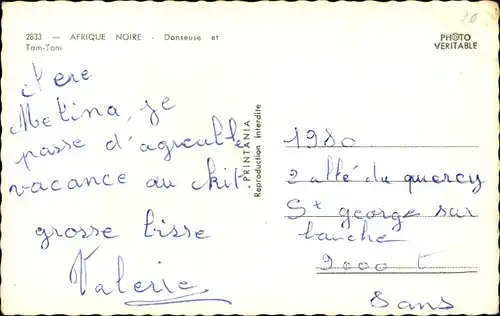 2833 — AFRIQUE NOIRE - Danseuse et
Tam-Tam
PHOTO
VERITABLE
Metina, je
passe d'agreable
vacance au
grosse bisse
Valerie
PRINTANIA
Reproduction interdite
1980
2 allé du quercy
St george sur
lauche
9000
Sans